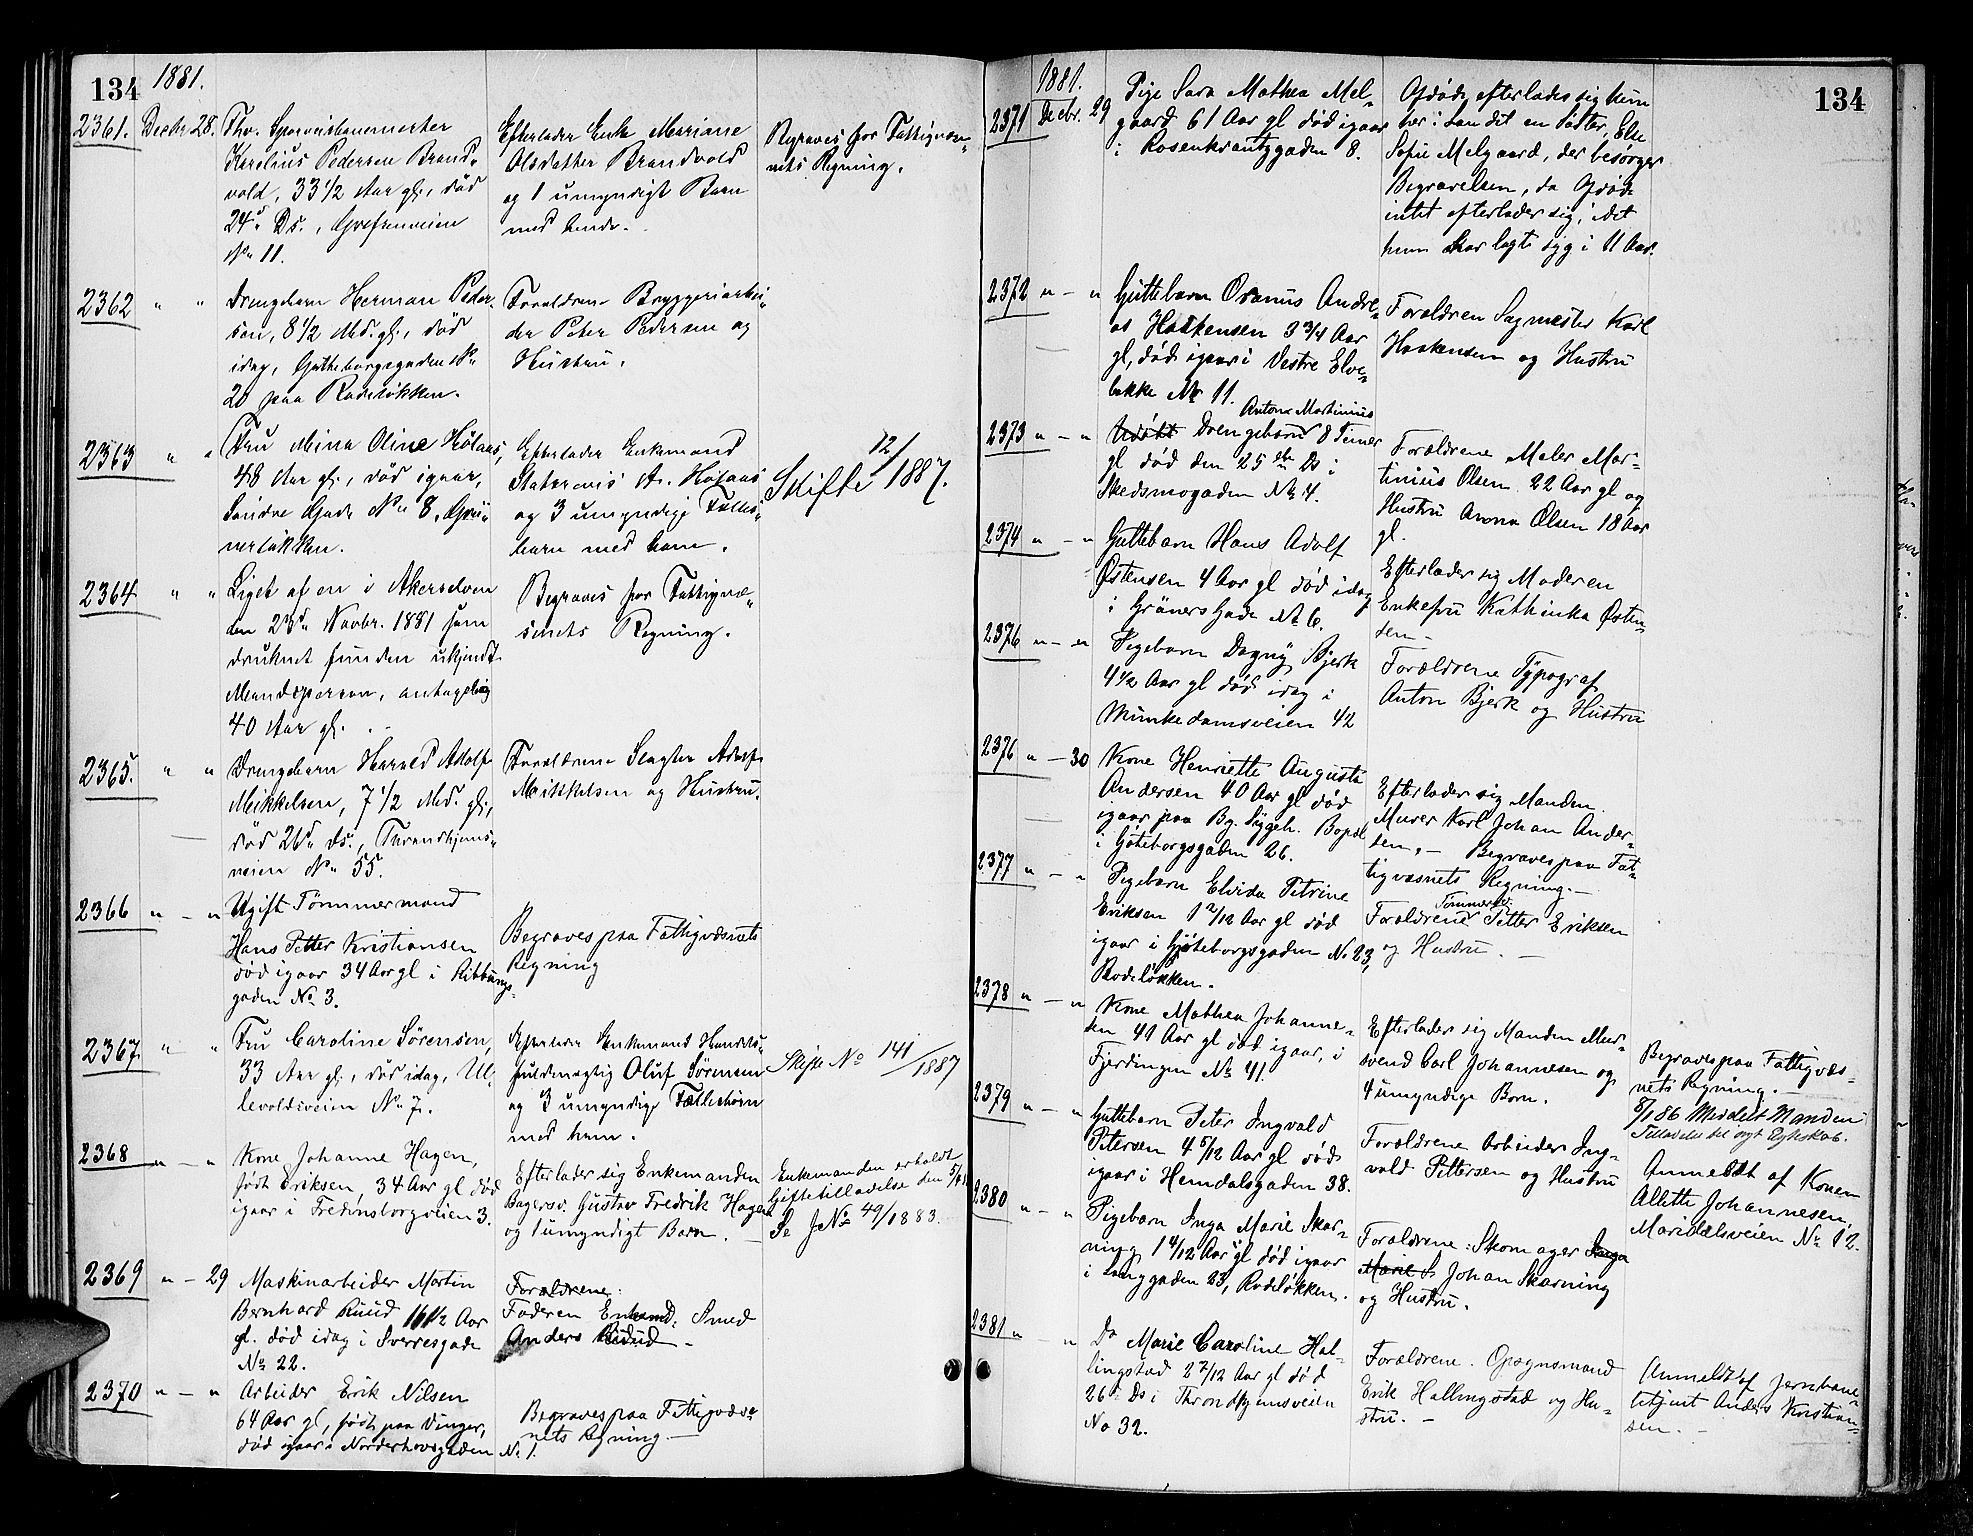 134
1881.
2361. Decbr. 28.
Fhv. Sporveisbanemester
Karelius Pedersen Brand-
vold, 33 1/2 Aar gl., død
24de Ds., Grefsenveien
No 11.
Efterlader Enke Mariane
Olsdatter Brandvold
og 1 umyndigt Barn
med hende.
Begraves for Fattigvæs-
nets Regning.
2362 " "
Drengebarn Herman Peder-
sen, 8 1/2 Md. gl., død
idag, Gøtheborgsgaden No
20 paa Rodeløkken.
Forældrene Bryggeriarbei-
der Peter Pedersen og
Hustru.
2363 " "
Fru Mina Oline Holaas,
48 Aar gl., død igaar,
Søndre Gade No 8, Grü-
nerløkken.
Efterlader Enkemand
A. Holaas
og 3 umyndige Fælles-
børn med ham.
Skifte 12/1887.
2364 " "
Liget af en i Akerselven
den Novbr. 1881 som
druknet funden ukjendt
Mandsperson, antagelig
40 Aar gl.
Begraves for Fattigvæ-
senets Regning.
2365. " "
Drengebarn Harald Adolf
Mikkelsen, 7 1/2 Md. gl.,
død 26de ds., Throndhjems-
veien No 55.
Forældrene Slagter Adolf
Mikkelsen og Hustru.
2366 " - "
Ugift Tømmermand
Hans Petter Kristiansen
død igaar 34 Aar gl i Ribbungs-
gaden No 3.
Begraves paa Fattigvæsnets
Regning
2367 " "
Fru Caroline Sörensen,
33 Aar gl., død idag, Ul-
levoldsveien No 7.
Efterlader Enkemand Handels-
fuldmægtig Oluf Sörensen
og 3 umyndige Fællesbørn
med ham.
Skifte No 141/1887
2368 " - "
Kone Johanne Hagen,
født Eriksen, 34 Aar gl død
igaar i Fredensborgveien 3.
Efterlader sig Enkemanden
Bagersv. Gustav Fredrik Hagen
og 1 umyndigt Barn.
Enkemanden erholdt
Giftetilladelse den
Se JNo 49/1883.
2369 " - 29
Maskinarbeider Martin
Bernhard Ruud 16 1/2 Aar
gl. død idag i Sverresgade
No 22.
Forældrene:
Faderen Enkemd. Smed
Anders Ruud -
2370 " - "
Arbeider Erik Nilsen
64 Aar gl, født paa Vinger,
død igaar i Norderhovsgaden No 1.
Begraves paa Fattigvæs-
nets Regning -
134
1881.
2371 Decbr. 29
Pige Sara Mathea Mel-
gaard 61 Aar gl død igaar
i Rosenkrantzgaden 8.
Afdøde efterlader sig kun
her i Landet en Søster, Else
Sofie Melgaard, der besørger
Begravelsen, da Afdøde
intet efterlader sig, idet
hun har lagt syg i 11 Aar.
2372 " - "
Guttebarn Oranus Andre-
as Haakensen 3 3/4 Aar
gl, død igaar i Vestre Elve-
bakke No 11.
Forældren Sagmester Karl
Haakensen og Hustru
2373 " - "
Anton Martinius
Udøbt Drengebarn 8 Timer
gl død den 25de Ds i
Skedsmogaden No 4.
Forældrene Maler Mar-
tinius Olsen 22 Aar gl og
Hustru Olsen 18 Aar
gl.
2374 " - "
Guttebarn Hans Adolf
Østensen 4 Aar gl død idag
i Grüners Gade No 6.
Efterlader sig Moderen
Enkefru Kathinka Østen-
sen -
2376 " - "
Pigebarn Dagny Bjerk
4 1/2 Aar gl død idag i
Munkedamsveien 42
Forældrene Typograf
Anton Bjerk og Hustru
2376 " - 30
Kone Henriette Augusta
Andersen 40 Aar gl død
igaar paa By. Sygeh. Bopæl
i Gøteborgsgaden 26.
Efterlader sig Manden
Murer Karl Johan Ander-
sen. - Begraves paa Fat-
tigvæsnets Regning. -
2377 " - "
Pigebarn Elvida Petrine
Eriksen 1 2/12 Aar gl død
igaar i Gøteborgsgaden No 23,
Rodeløkken.
Tømmersv.
Forældrene Petter Eriksen
og Hustru. -
2378 " - "
Kone Mathea Johanne-
sen 41 Aar gl død igaar, i
Fjerdingen No 41.
Efterlader sig Manden Mur-
svend Carl Johannesen og
4 umyndige Børn.
Begraves paa Fattigvæs-
nets Regning. -
8/1 86 Meddelt Manden
Tilladelse til nyt Egteskab.
2379 " - "
Guttebarn Peter Ingvald
Petersen 4 5/12 Aar gl død
igaar i Hemdalsgaden 38.
Forældrene Arbeider Ing-
vald Pettersen og Hustru
Anmeldt af Konen
Alette Johannesen,
Maridalsveien No 12.
2380 " - "
Pigebarn Inga Marie Skar-
ning 1 4/12 Aar gl død igaar
i Langgaden 23, Rodeløkken.
Forældrene: Skomager Inga
Marie S. Johan Skarning
og Hustru.
2381 " - "
Do Marie Caroline Hal-
lingstad 2 7/12 Aar gl død
26de Ds i Throndhjemsveien
No 32.
Forældrene. Opsynsmand
Erik Hallingstad og Hu-
stru. -
Anmeldt af Jernbane-
betjent Anders Kristian-
sen. -